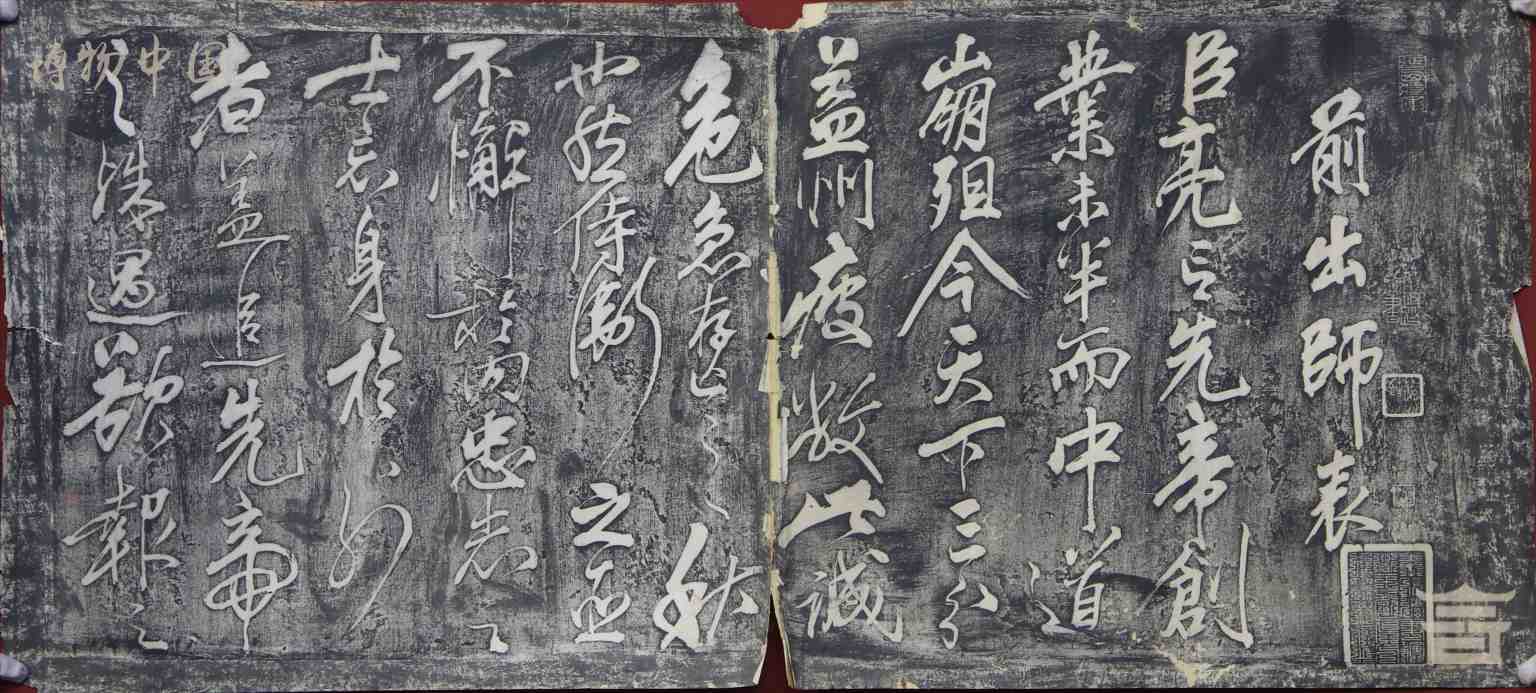 前出師表
臣亮言先帝創
業未半而中道
崩殂今天下三分
益州疲敝此誠
危急存亡之秋
也然侍衛之臣
不懈於內忠志之
士忘身於外
者蓋追先帝
之殊遇欲報之
博物中国